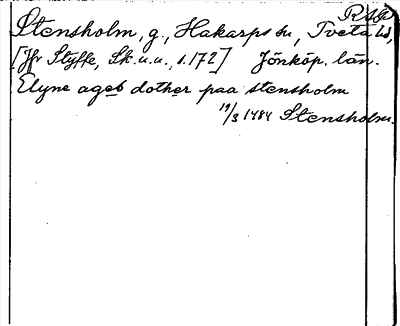 Stensholm, g., Hakarps sn, Tveta hd,
[Jfr Styffe, Sk.u.u., s.172] Jönköp. län.
Elyne ages dother paa stensholm
19/3 1484 Stensholm.